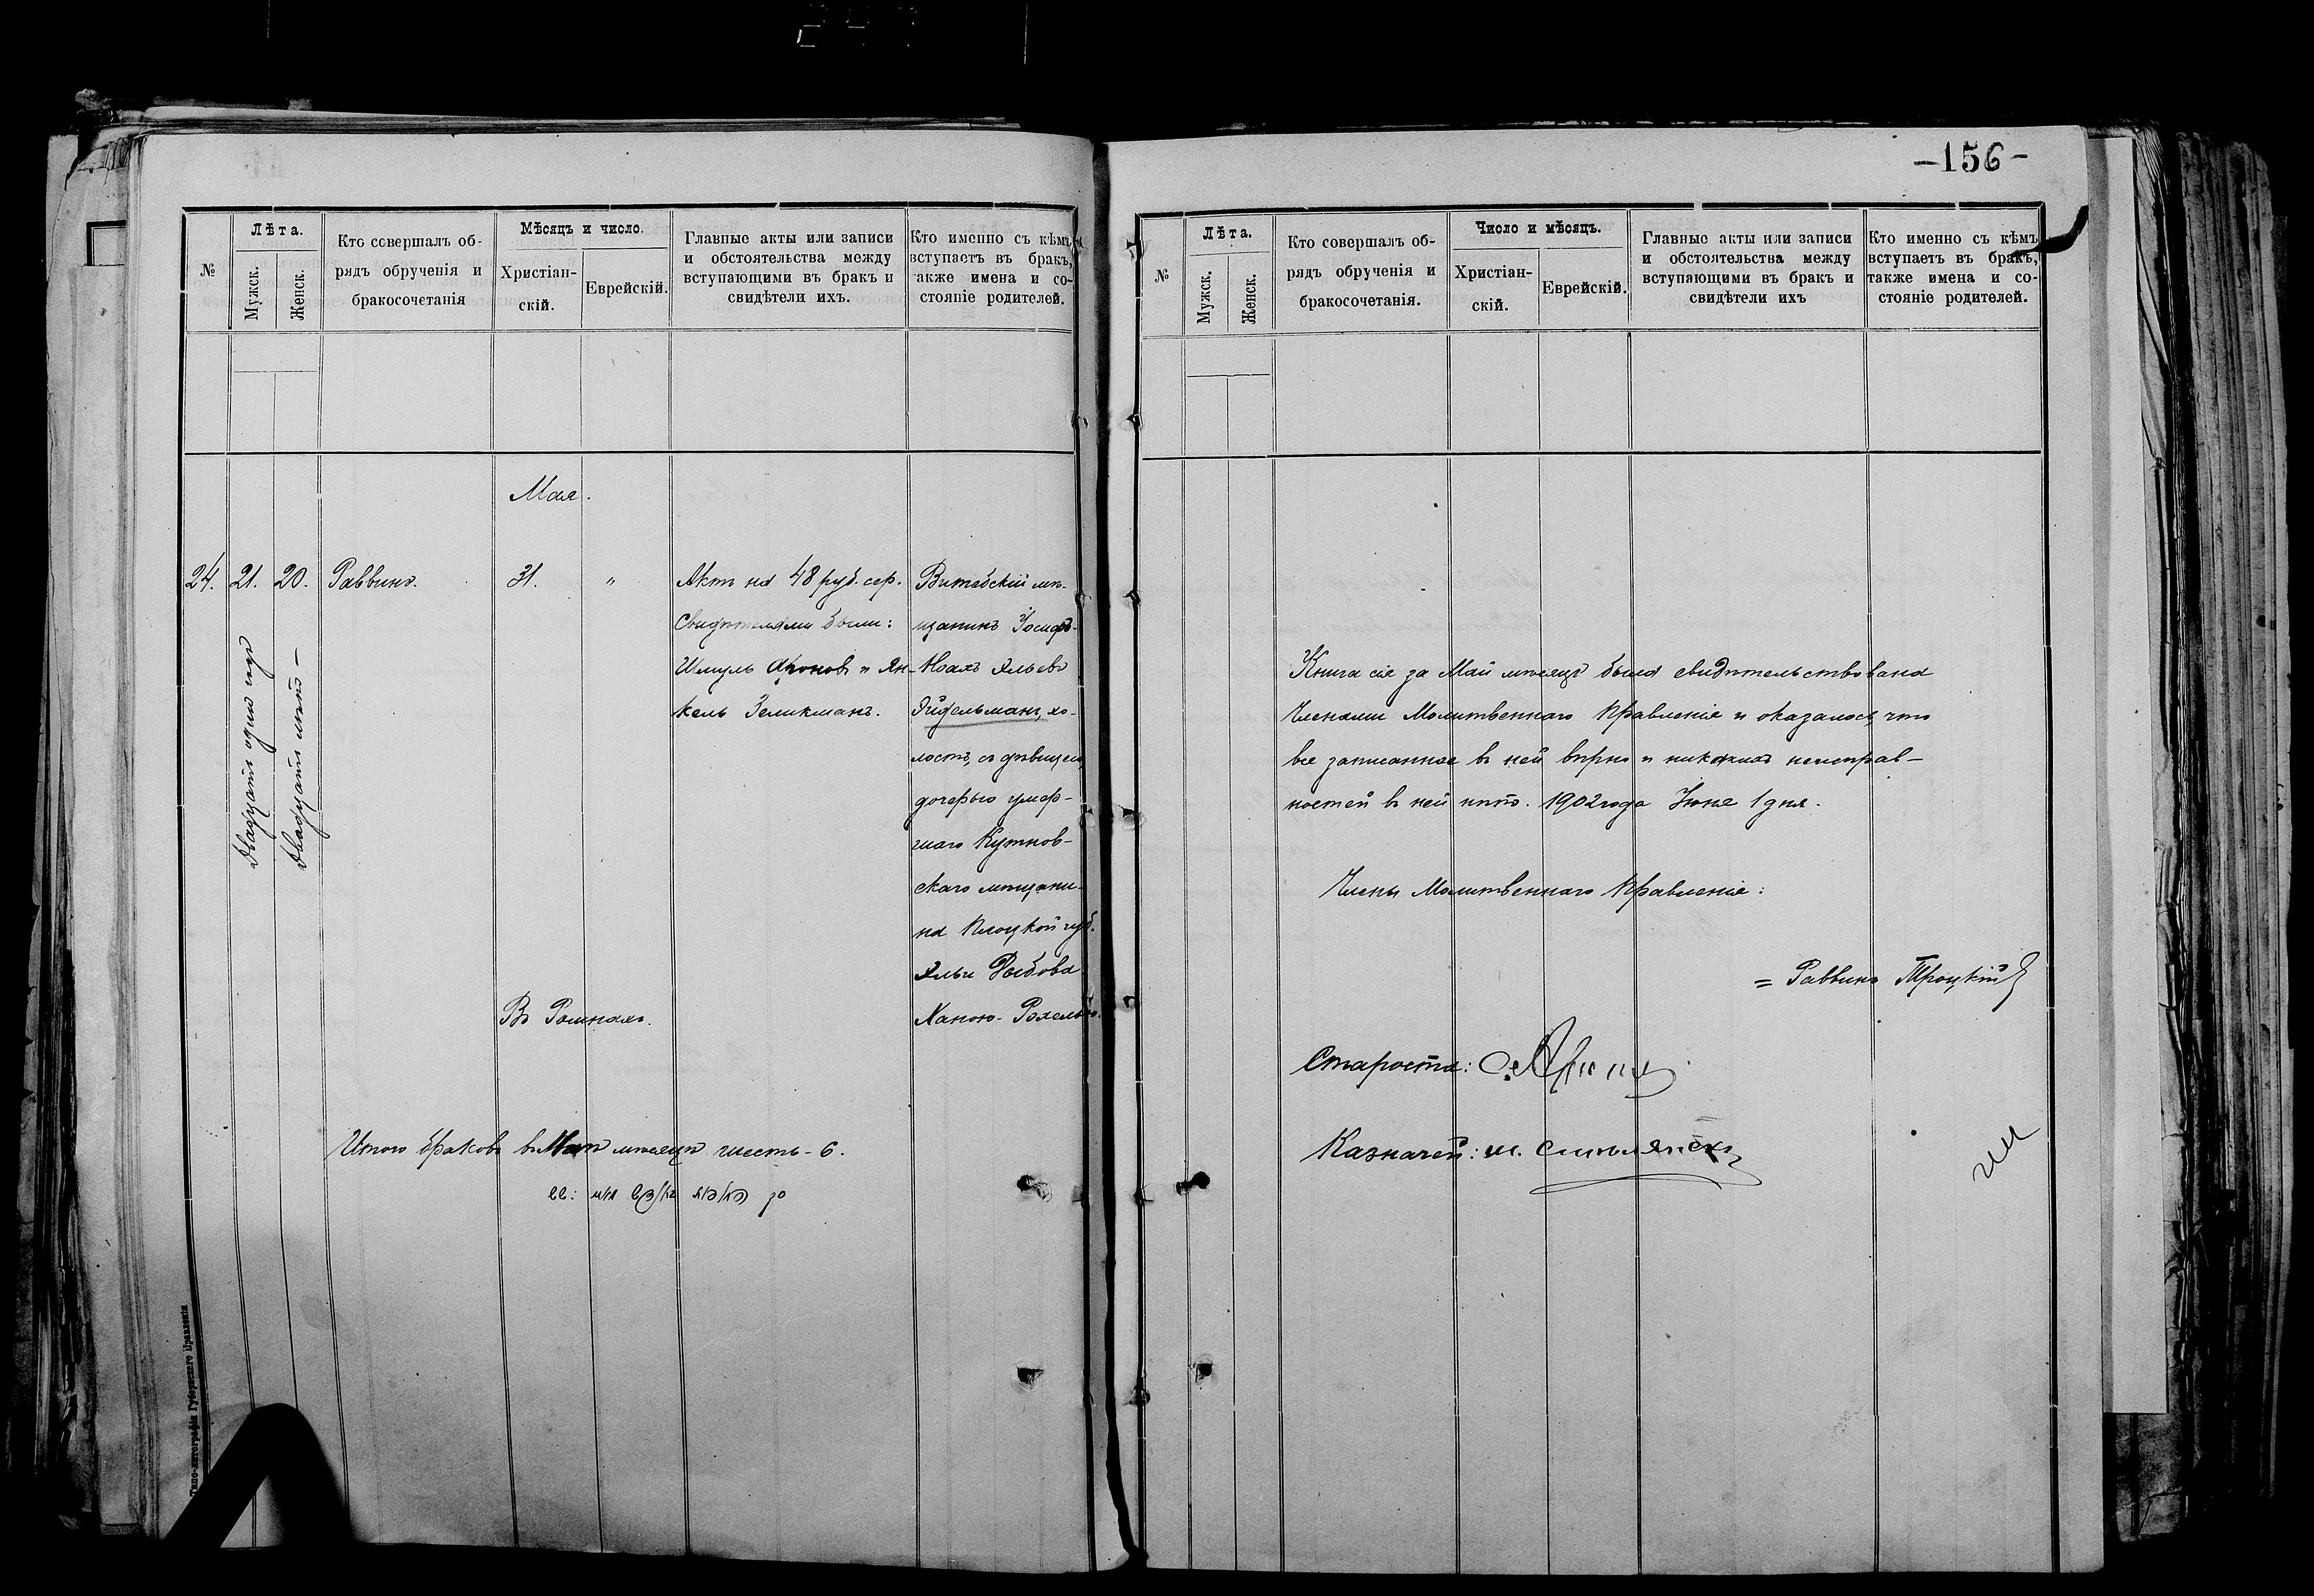 №
Лѣта.
Мужск.
Женск.
Кто совершалъ об-
рядъ обрученія и
бракосочетанія
Мѣсяцъ и число.
Христіан-
скій.
Еврейскій.
Главные акты или записи
и обстоятельства между
вступающими въ бракъ и
свидѣтели ихъ.
Кто именно съ кѣмъ
вступаетъ въ бракъ,
акже имена и со-
стояніе родителей.
Мая.
24.
21.
Двадцать одинъ годъ
20.
Двадцать лѣтъ —
Раввинъ.
31.
"
Актъ на 48 руб. сер.
Свидѣтелями были:
Шмуль Ароновъ и Ян-
кель Зеликманъ.
Витебскій мѣ-
щанинъ Іосифъ-
Ноахъ Эльевъ
Эйдельманъ, хо-
лостъ, съ дѣвицею,
дочерью умер-
шаго Кутнов-
скаго мѣщани-
на Плоцкой губ.
Эльи
Ханою-Рохелью.
Въ
Итого браковъ въ Маѣ мѣсяцѣ шесть - 6.
Типо-литографія Губернскаго Правленія
–156–
№
Лѣта.
Мужск.
Женск.
Кто совершалъ об-
рядъ обрученія и
бракосочетанія.
Число и мѣсяцъ.
Христіан-
скій.
Еврейскій.
Главные акты или записи
и обстоятельства между
вступающими въ бракъ и
свидѣтели ихъ
Кто именно съ кѣмъ
вступаетъ въ бракъ,
также имена и со-
стояніе родителей.
Книга сія за Май мѣсяцъ была свидѣтельствована
Членами Молитвеннаго Правленія и оказалось, что
все записанное въ ней вѣрно и никакихъ неисправ-
ностей въ ней нѣтъ. 1902 года Іюня 1 дня.
Члены Молитвеннаго Правленія:
= Раввинъ Троцкій
Староста:
Казначей: Ш.